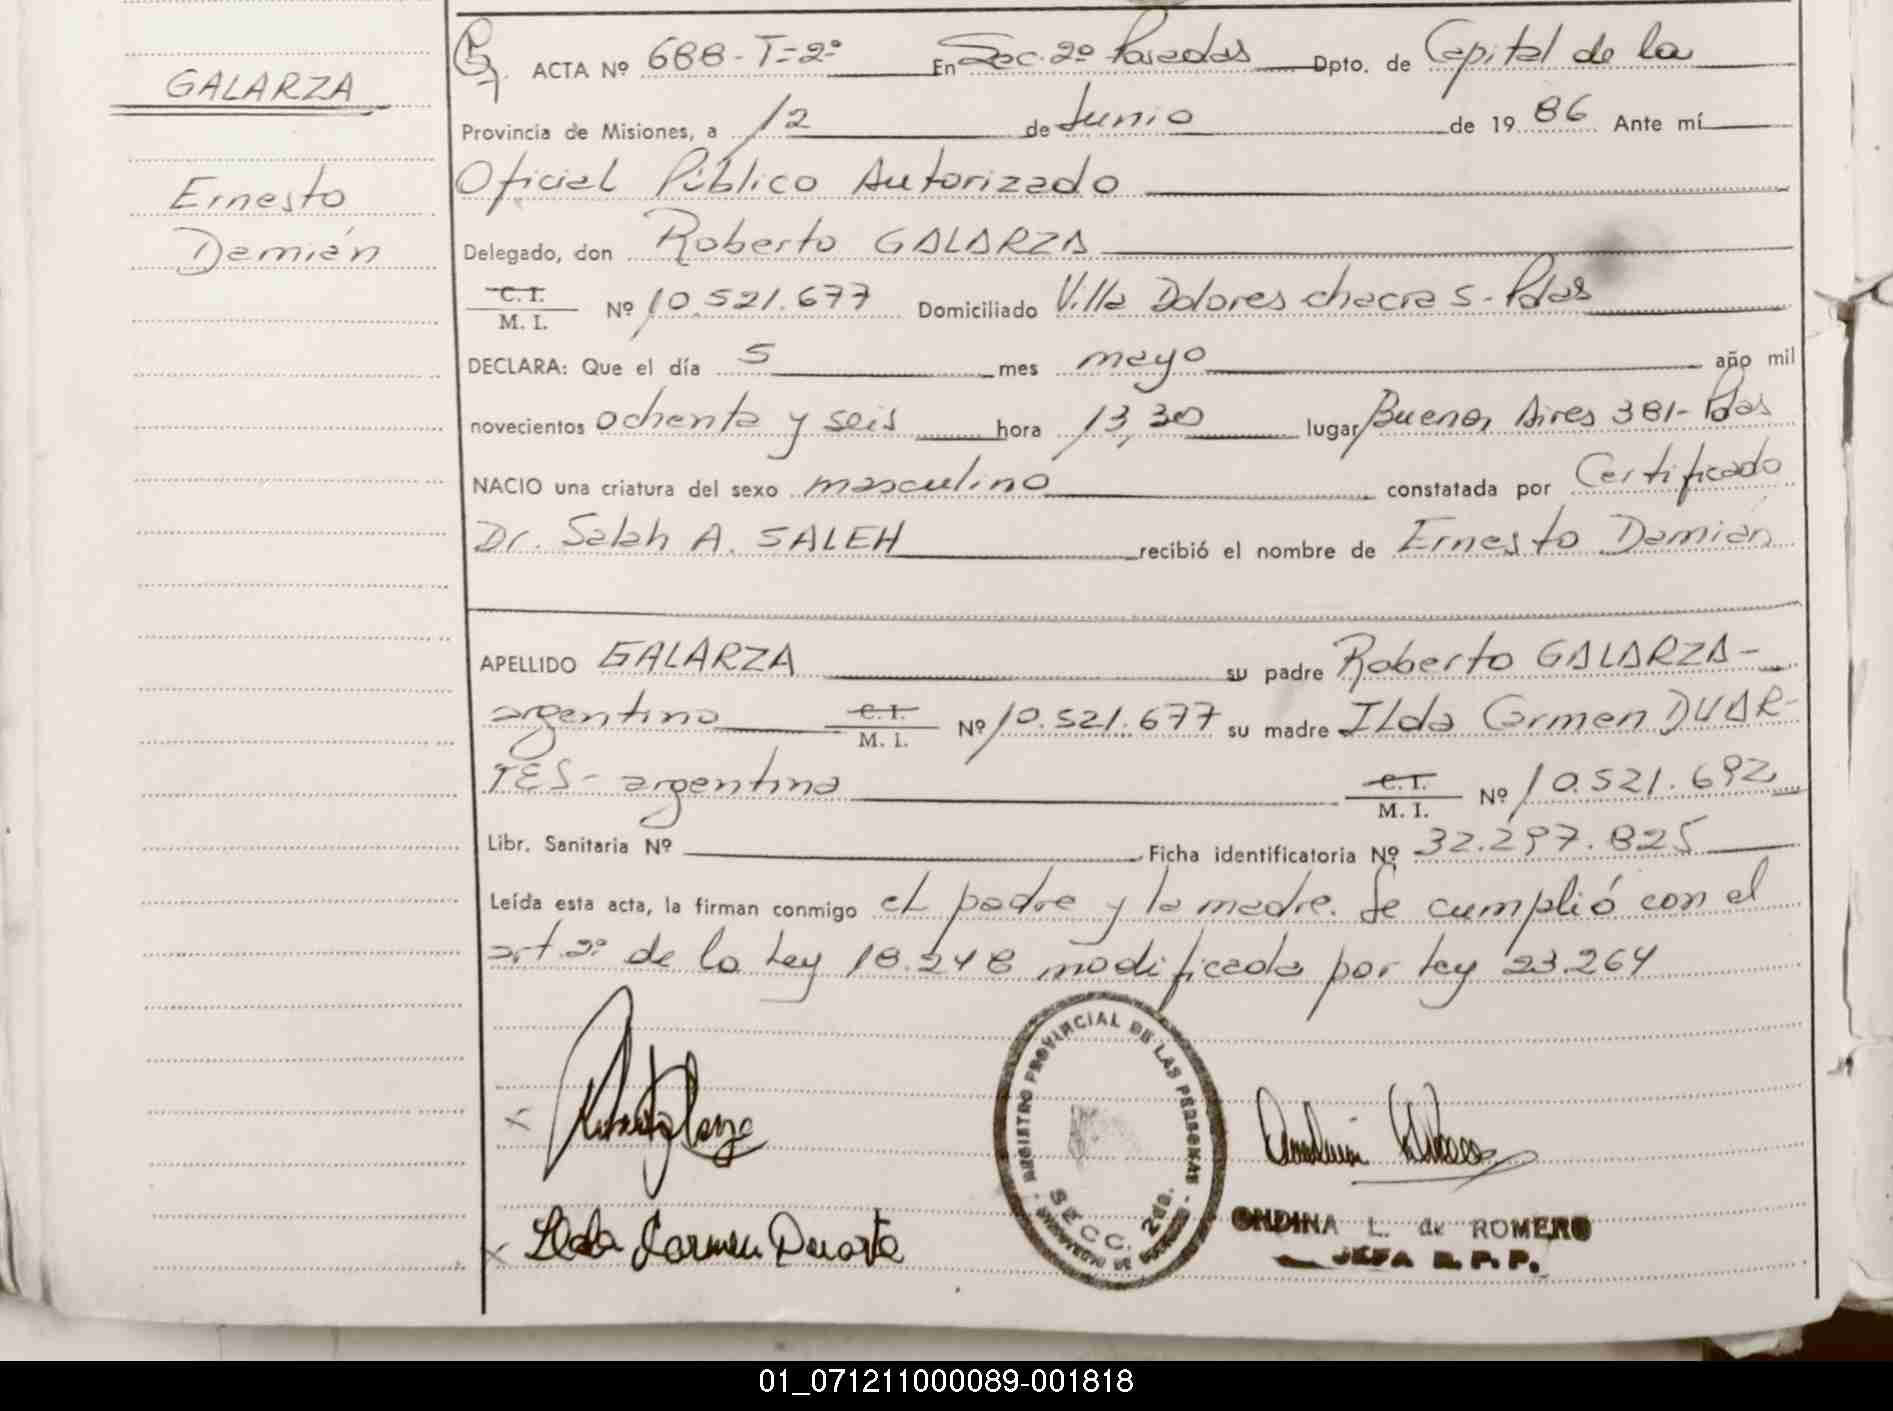 GALARZA
Ernesto
Damián
ACTA Nº 688-T-2º En Sec. 2º Posadas Dpto. de Capital de la
Provincia de Misiones, a 12 de Junio de 1986 Ante mí
Oficial Público Autorizado
Delegado, don Roberto GALARZA
C. I.
M. I. Nº 10.521.677 Domiciliado Villa Dolores chacra 5-Pdas
DECLARA: Que el día 5 mes mayo año mil
novecientos ochenta y seis hora 13,30 lugar Buenos Aires 381-Pdas
NACIO una criatura del sexo masculino constatada por Certificado
Dr. Salah A. SALEH recibió el nombre de Ernesto Damián
APELLIDO GALARZA su padre Roberto GALARZA-
argentino C. I. M. I. Nº 10.521.677 su madre ILda Carmen DUAR-
TES- argentina C. I. M. I. Nº 10.521.692
Libr. Sanitaria Nº Ficha identificatoria Nº 32.297.825
Leída esta acta, la firman conmigo el padre y la madre. Se cumplió con el
art. 2º de la Ley 18.248 modificada por ley 23.264
REGISTRO PROVINCIAL DE LAS PERSONAS
SECC. 2da.
Ilda Carmen Duarte
ONDINA L. de ROMERO
JEFA R. P. P.
01_071211000089-001818